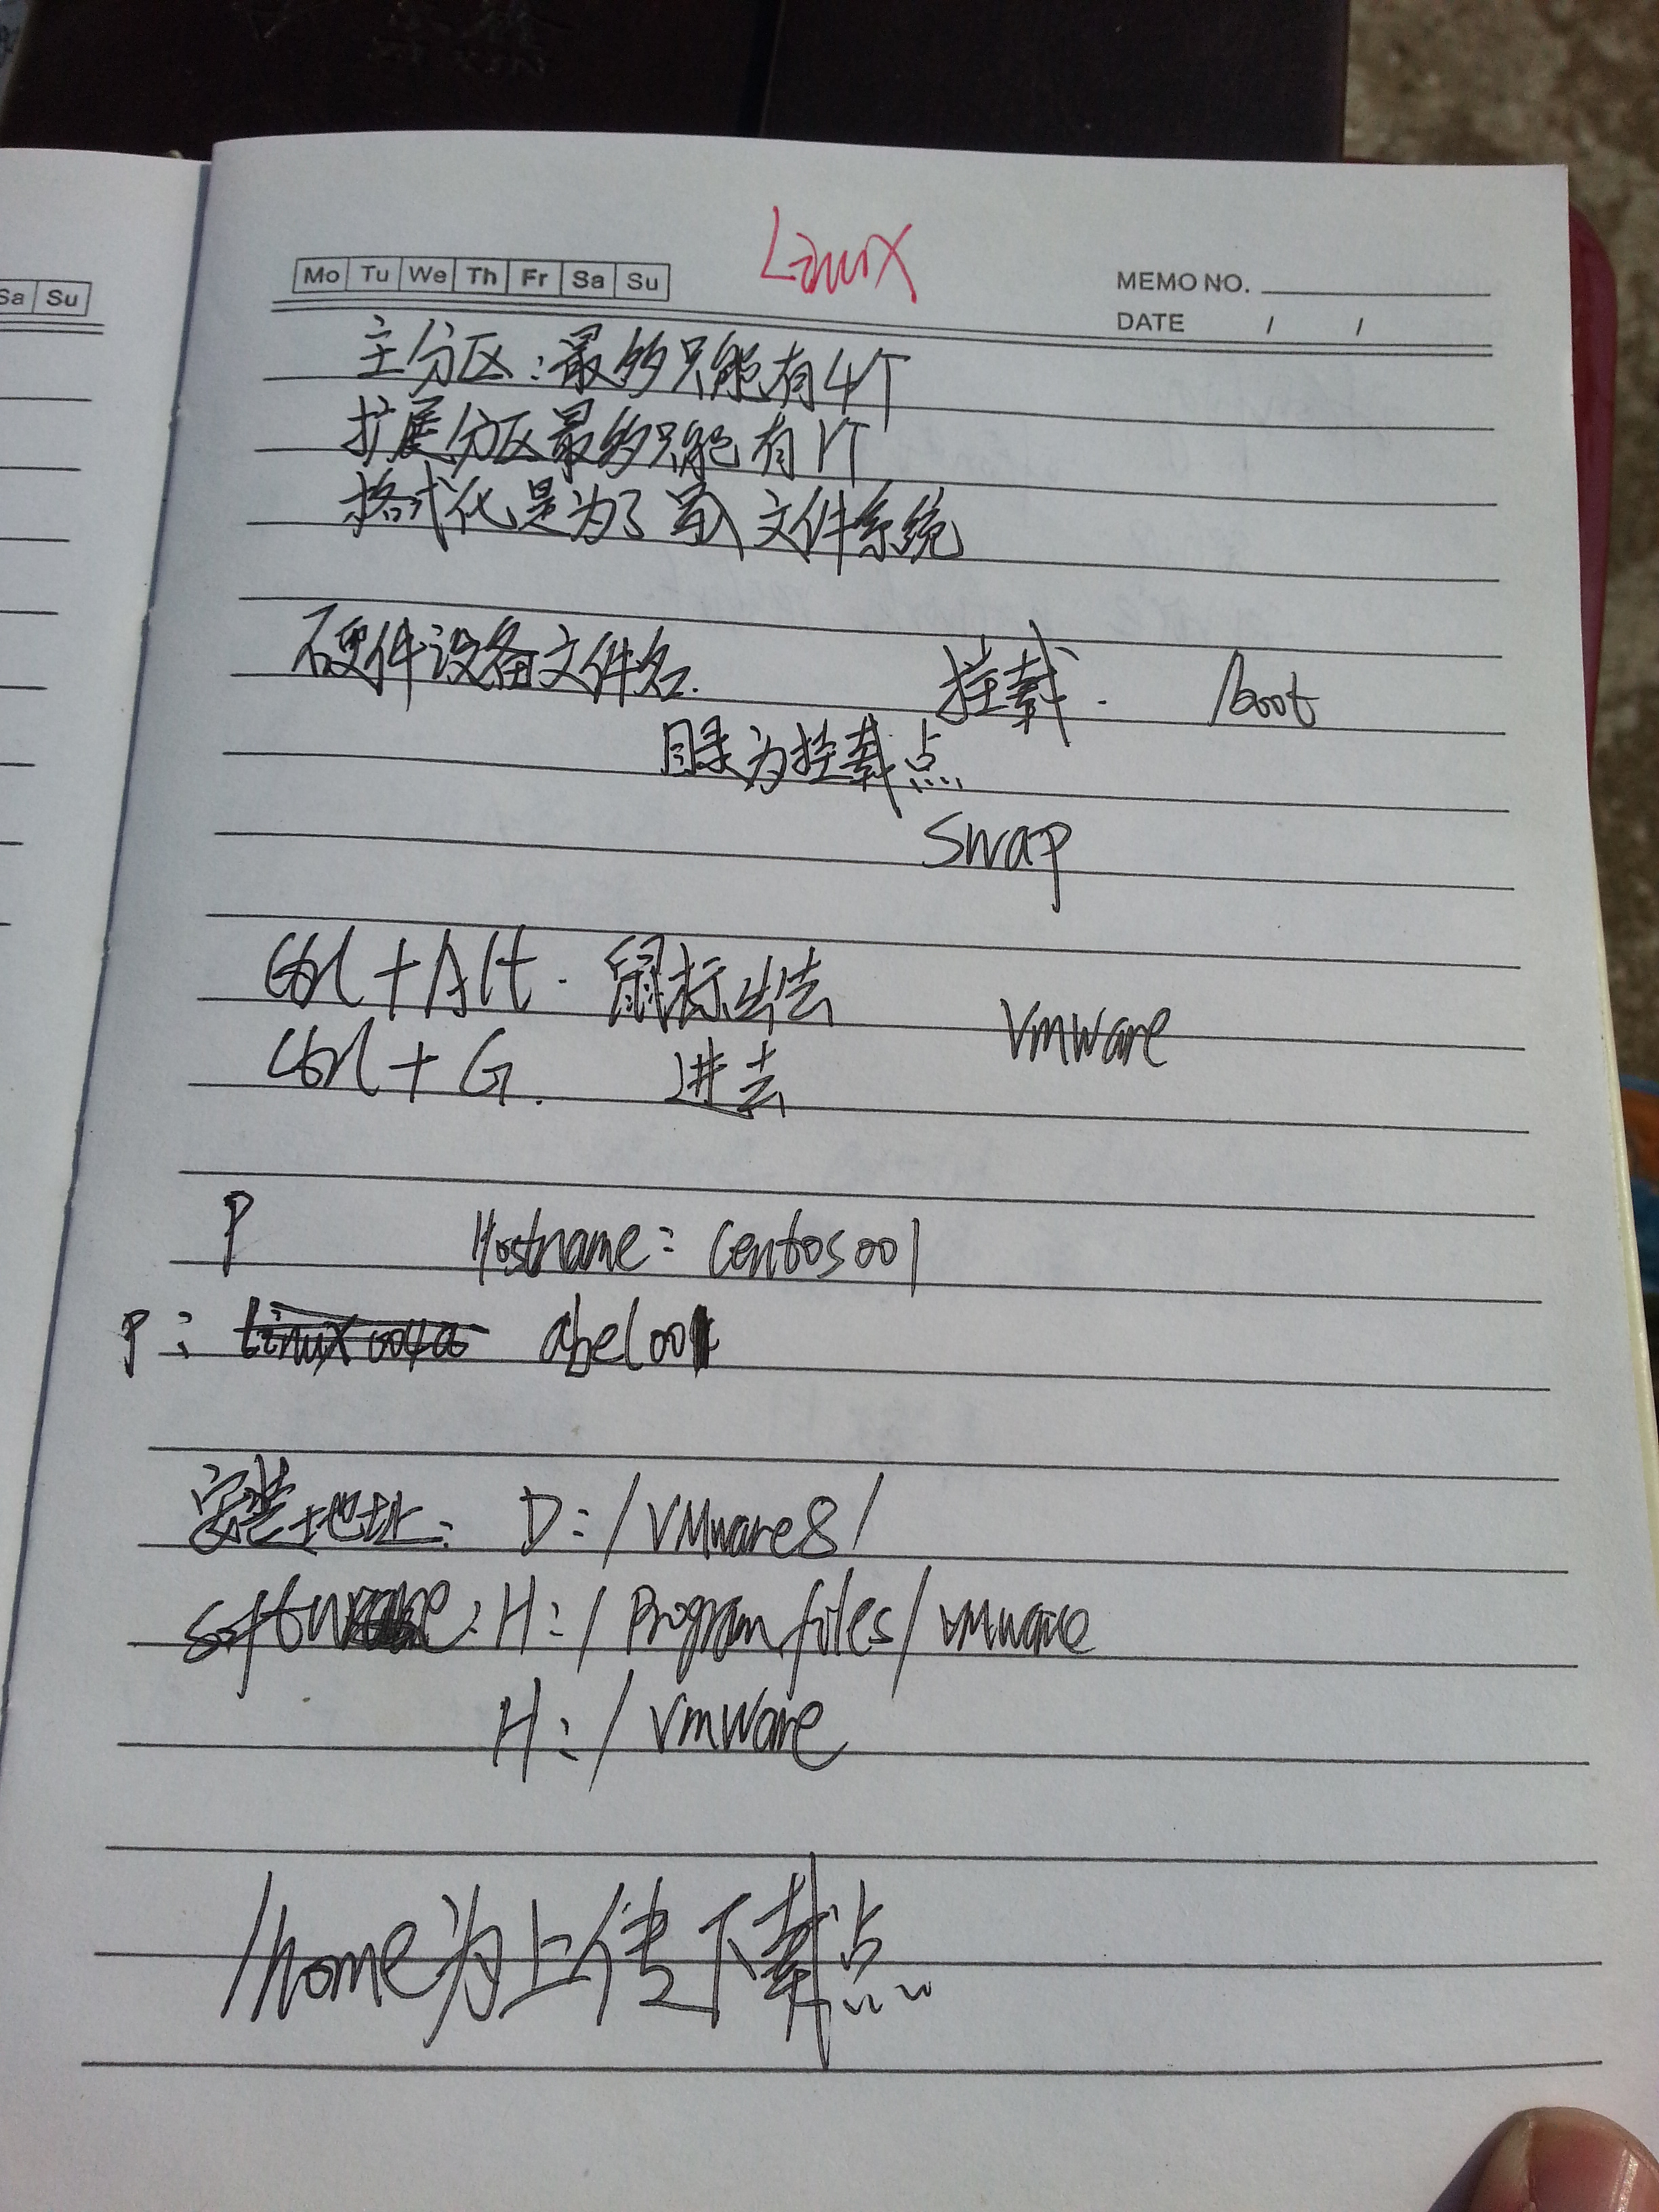 Sa Su
Linux
Mo Tu We Th Fr Sa Su
MEMO NO.
DATE / /
主分区:最多只能有4个
扩展分区最多只能有1个
格式化是为了 文件系统
硬件设备文件名. 挂载. /boot
目录为挂载点
Swap
Ctrl + Alt. 鼠标出去
Vmware
Ctrl + G. 进去
P Hostname: Centos001
P: Linux abel001
安装地址: D:/VMware8/
software: H:/Program files/vmware
H:/Vmware
/home为上传下载点